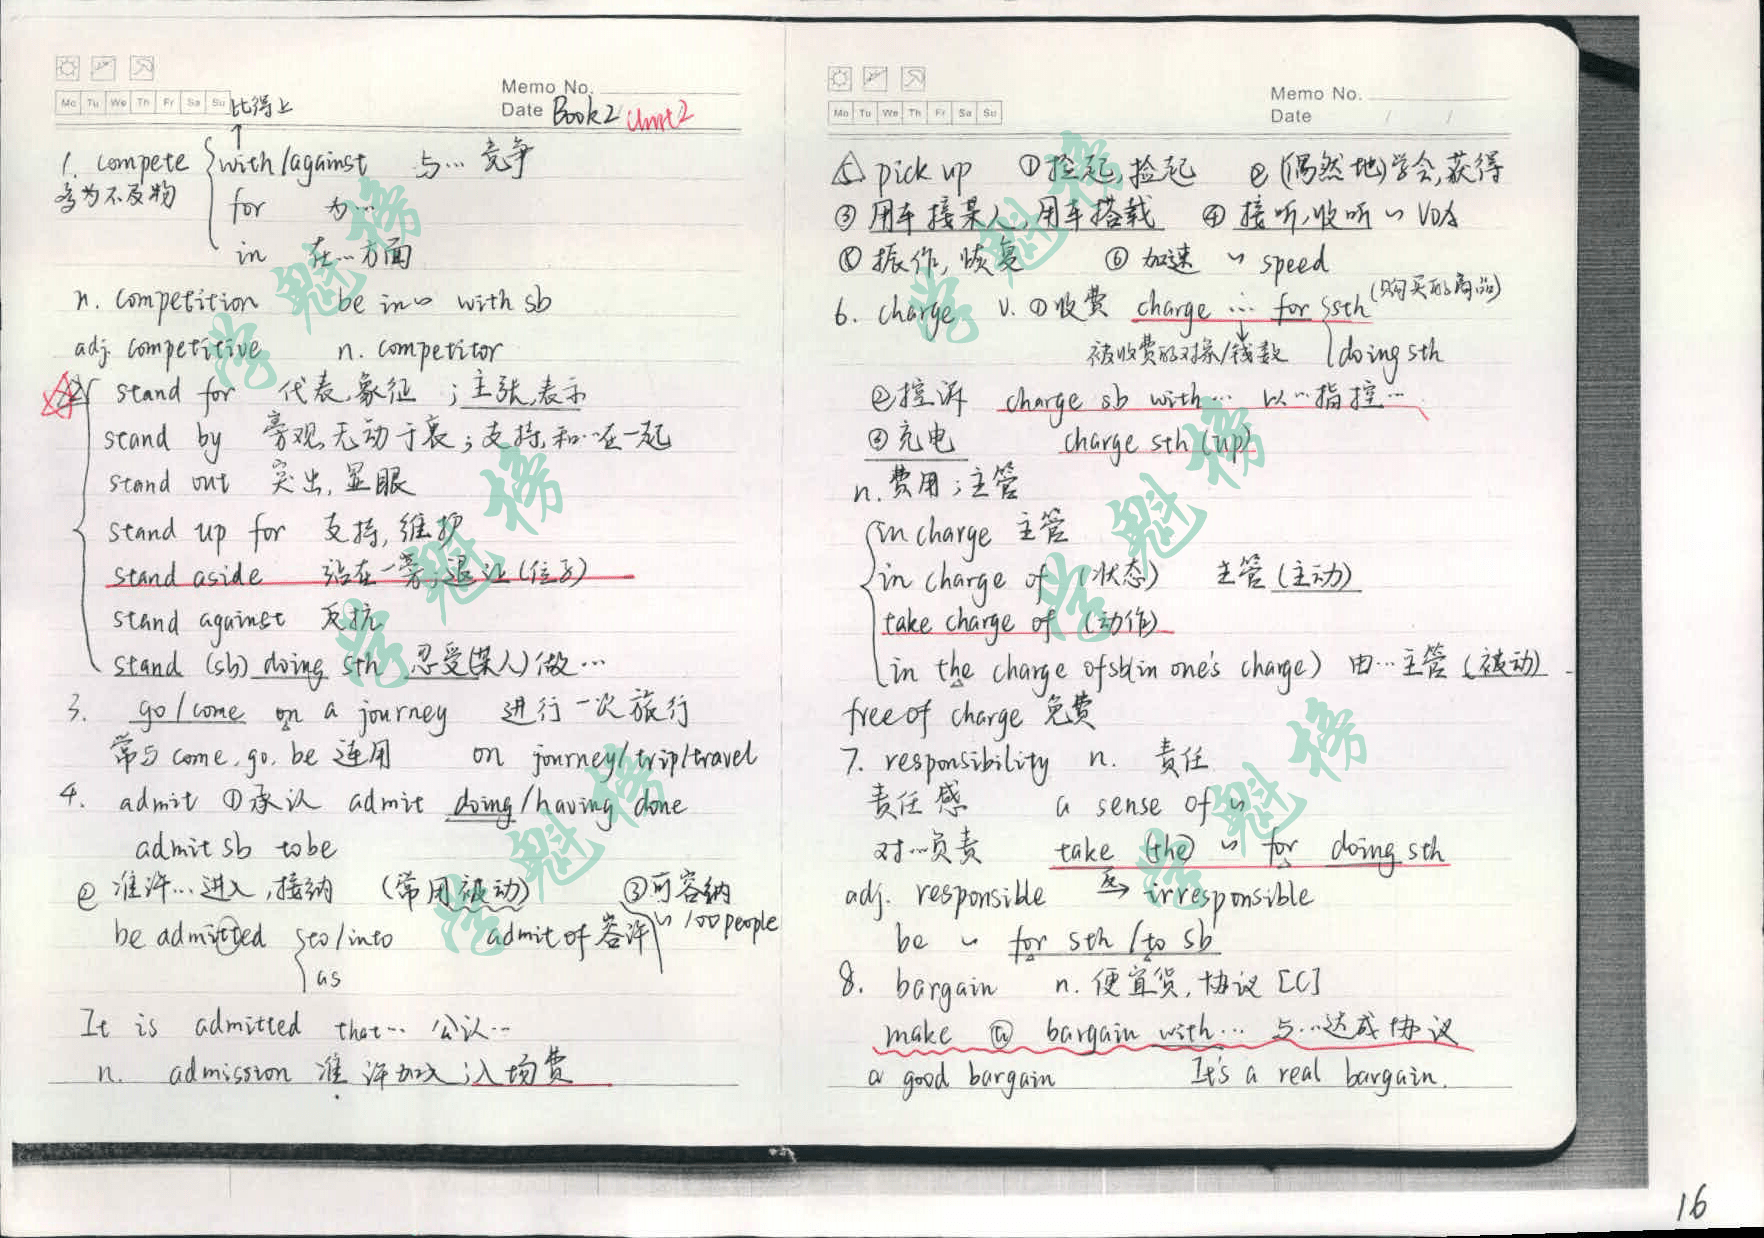 Memo No.
Mo Tu We Th Fr Sa Su
Date Book2 Unit2
比得上
1. compete with/against 与…竞争
多为不及物 for 为…
in 在…方面
n. competition be in ~ with sb
adj. competitive n. competitor
2 stand for 代表,象征 ;主张,表示
stand by 旁观,无动于衷;支持,和…在一起
stand out 突出,显眼
stand up for 支持,维护
stand aside 站在一旁;退让(位子)
stand against 反抗
stand (sb) doing sth 忍受(某人)做…
3. go/come on a journey 进行一次旅行
常与come, go, be连用 on journey/trip/travel
4. admit ①承认 admit doing/having done
admit sb to be
② 准许…进入,接纳 (常用被动) ③可容纳
be admitted to/into admit of 容许 ~ 100 people
as
It is admitted that… 公认…
n. admission 准许加入;入场费
Memo No.
Mo Tu We Th Fr Sa Su
Date / /
5 pick up ①捡起,捡起 ②(偶然地)学会,获得
③用车接某人,用车搭载 ④接听,收听 ~ VOA
⑤振作,恢复 ⑥加速 ~ speed
6. charge v. ①收费 charge … for sth (购买的商品)
被收费的对象/钱数 doing sth
②控诉 charge sb with… 以…指控…
③充电 charge sth (up)
n. 费用;主管
in charge 主管
in charge of (状态) 主管(主动)
take charge of (动作)
in the charge of sb(in one's charge) 由…主管(被动)
free of charge 免费
7. responsibility n. 责任
责任感 a sense of ~
对…负责 take (the) ~ for doing sth
adj. responsible 反→ irresponsible
be ~ for sth / to sb
8. bargain n. 便宜货,协议 [C]
make a bargain with… 与…达成协议
a good bargain It's a real bargain.
学魁榜
学魁榜
学魁榜
学魁榜
学魁榜
学魁榜
16